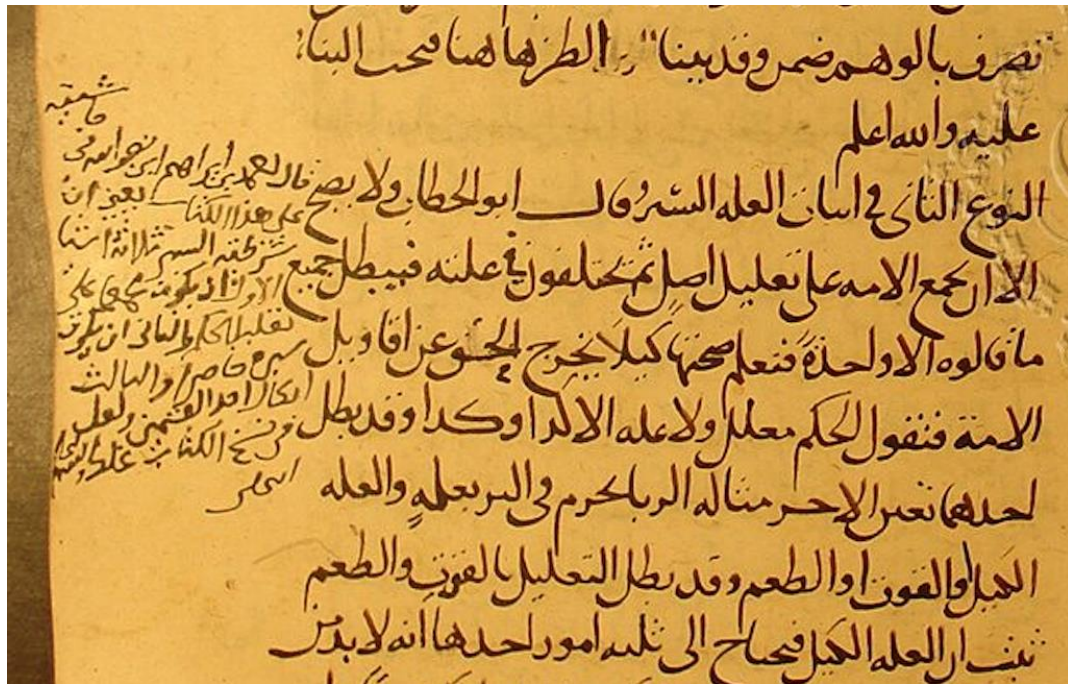 تصرف بالوهم ضمن وقد بينا الطرد هاهنا فيجب البناء
عليه والله اعلم
النوع الثاني في اثبات العله السبر قال ابو الخطاب ولا يصح
الا ان تجمع الامه على تعليل اصل ثم يختلفون في علته فيبطل جميع
ما قالوه الا واحدة فنعلم صحتها كيلا يخرج الحق عن اقاويل
الامة فنقول الحكم معلل ولا عله الا كذا وكذا وقد بطل
احدهما تعين الاخر مثاله الربا يحرم في البر بعلة والعله
الكيل او القوت او الطعم وقد بطل التعليل بالقوت والطعم
ثبت ان العله الكيل فيحتاج الى ثلثه امور احدها انه لا بد من
حاشية
قال ابن ابراهيم ابن نصر الله في
على هذا الكتاب يعني ان
شرط السبر ثلاثة اشيا
الاول ان يكون مجمعا على
تعليل الحكم والثاني ان يكون
سبره حاصرا والثالث
ابطال احد القسمين ولعل
في نسخ الكتاب غلط